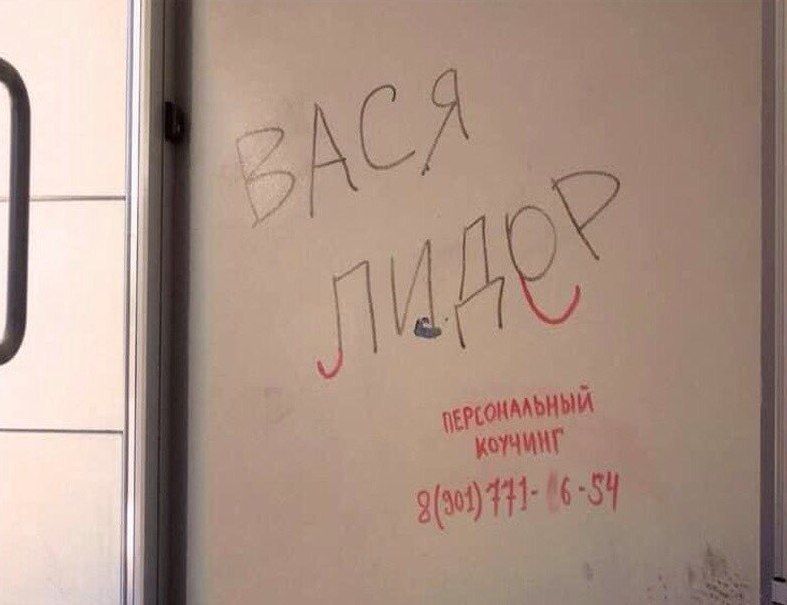 ВАСЯ
ЛИДЕР
ПЕРСОНАЛЬНЫЙ
КОУЧИНГ
8(901)771- 6-54